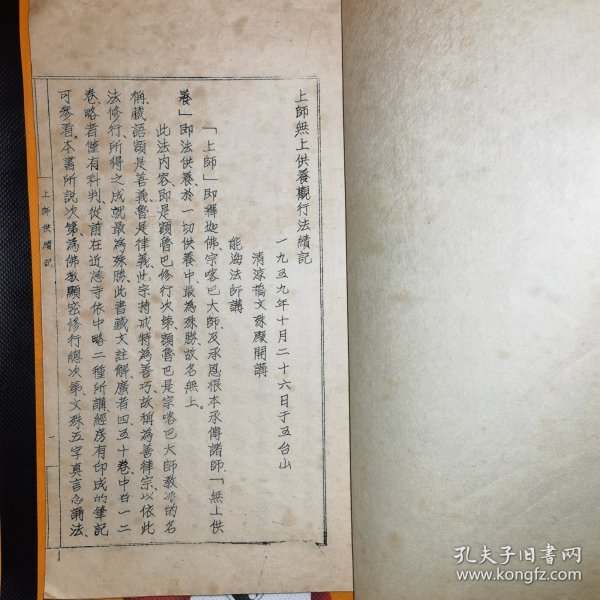 上師無上供養觀行法續記
一九五九年十月二十六日于五台山
清涼橋文殊殿開講
能海法師講
「上師」即釋迦佛宗喀巴大師、及承恩根本承傳諸師、「無上供
養」即法供養、於一切供養中、最為殊勝、故名無上。
此法內容、即是額魯巴修行次第、額魯巴是宗喀巴大師教派的名
稱、藏語額是善義、魯是律義、此宗持戒特為善巧、故稱為善律宗、以依此
法修行、所得之成就、最為殊勝、此書藏文註解、廣者四五十卷、中者一二
卷、略者僅有科判、從前在近慈寺依中略二種所講、經房有印成的筆記
可參看、本書所說次第、為佛教顯密修行總次第、文殊五字真言念誦法、
上師供續記
一
孔夫子旧书网
www.kongfz.com